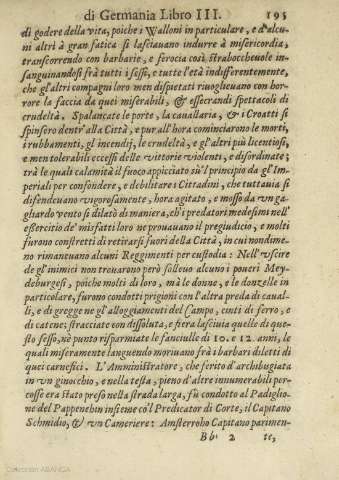 di Germania Libro III. 195
di godere della vita, poiche i Walloni in particulare, e d'alcu-
ni altri à gran fatica si lasciauano indurre à misericordia,
transcorrendo con barbarie, e ferocia così straboccheuole in-
sanguinandosi frà tutti i sessi, e tutte l'età indifferentemente,
che gl'altri compagni loro men dispietati riuoglieuano con hor-
rore la faccia da quei miserabili, & essecrandi spettacoli di
crudeltà. Spalancate le porte, la cauallaria, & i Croatti si
spinsero dentr'alla Città, e pur all'hora cominciarono le morti,
i rubbamenti, gl'incendij, le crudeltà, e gl'altri più licentiosi,
e men tolerabili eccessi delle vittorie violenti, e disordinate;
trà le quali calamità il fuoco appicciato sù'l principio da gl'Im-
periali per confondere, e debilitare i Cittadini, che tuttauia si
difendeuano vigorosamente, hora agitato, e mosso da vn ga-
gliardo vento si dilatò di maniera, ch'i predatori medesimi nell'
essercitio de' misfatti loro ne prouauano il pregiudicio, e molti
furono constretti di ritirarsi fuori della Città, in cui nondime-
no rimaneuano alcuni Reggimenti per custodia: Nell'vscire
de gl'inimici non trouarono però solleuo alcuno i poueri Mey-
deburgesi, poiche molti di loro, mà le donne, e le donzelle in
particolare, furono condotti prigioni con l'altra preda di caual-
li, e di gregge ne gl'alloggiamenti del Campo, cinti di ferro, e
di catene; stracciate con dissoluta, e fiera lasciuia quelle di que-
sto sesso, nè punto risparmiate le fanciulle di 10. e 12. anni, le
quali miseramente languendo moriuano frà i barbari diletti di
quei carnefici. L'Amministratore, che ferito d'archibugiata
in vn ginocchio, e nella testa, pieno d'altre innumerabili per-
cosse era stato preso nella strada larga, fù condotto al Padiglio-
ne del Pappenhein insieme co'l Predicator di Corte, il Capitano
Schmidio, & vn Cameriere: Amsterroho Capitano parimen-
Bb 2 te,
Colección ABANCA